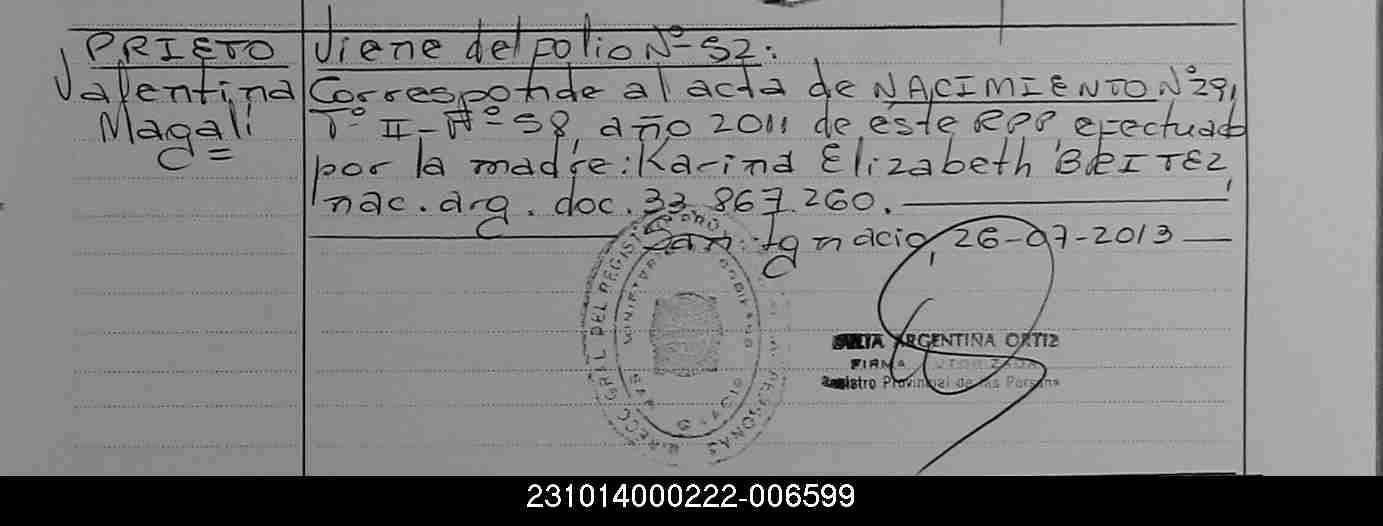 PRIETO
Valentina
Magali
C=
Viene del folio Nº 52:
Corresponde al acta de NACIMIENTO Nº 29,
Tº II - Aº 58, año 2011 de este RPP, efectuado
por la madre: Karina Elizabeth BRITEZ,
nac. arg. doc. 33.867.260.
San Ignacio, 26-07-2013
ARGENTINA ORTIZ
FIRMA AUTORIZADA
Registro Provincial de las Personas
GRAL DEL REGISTRO
PERSONAS
231014000222-006599